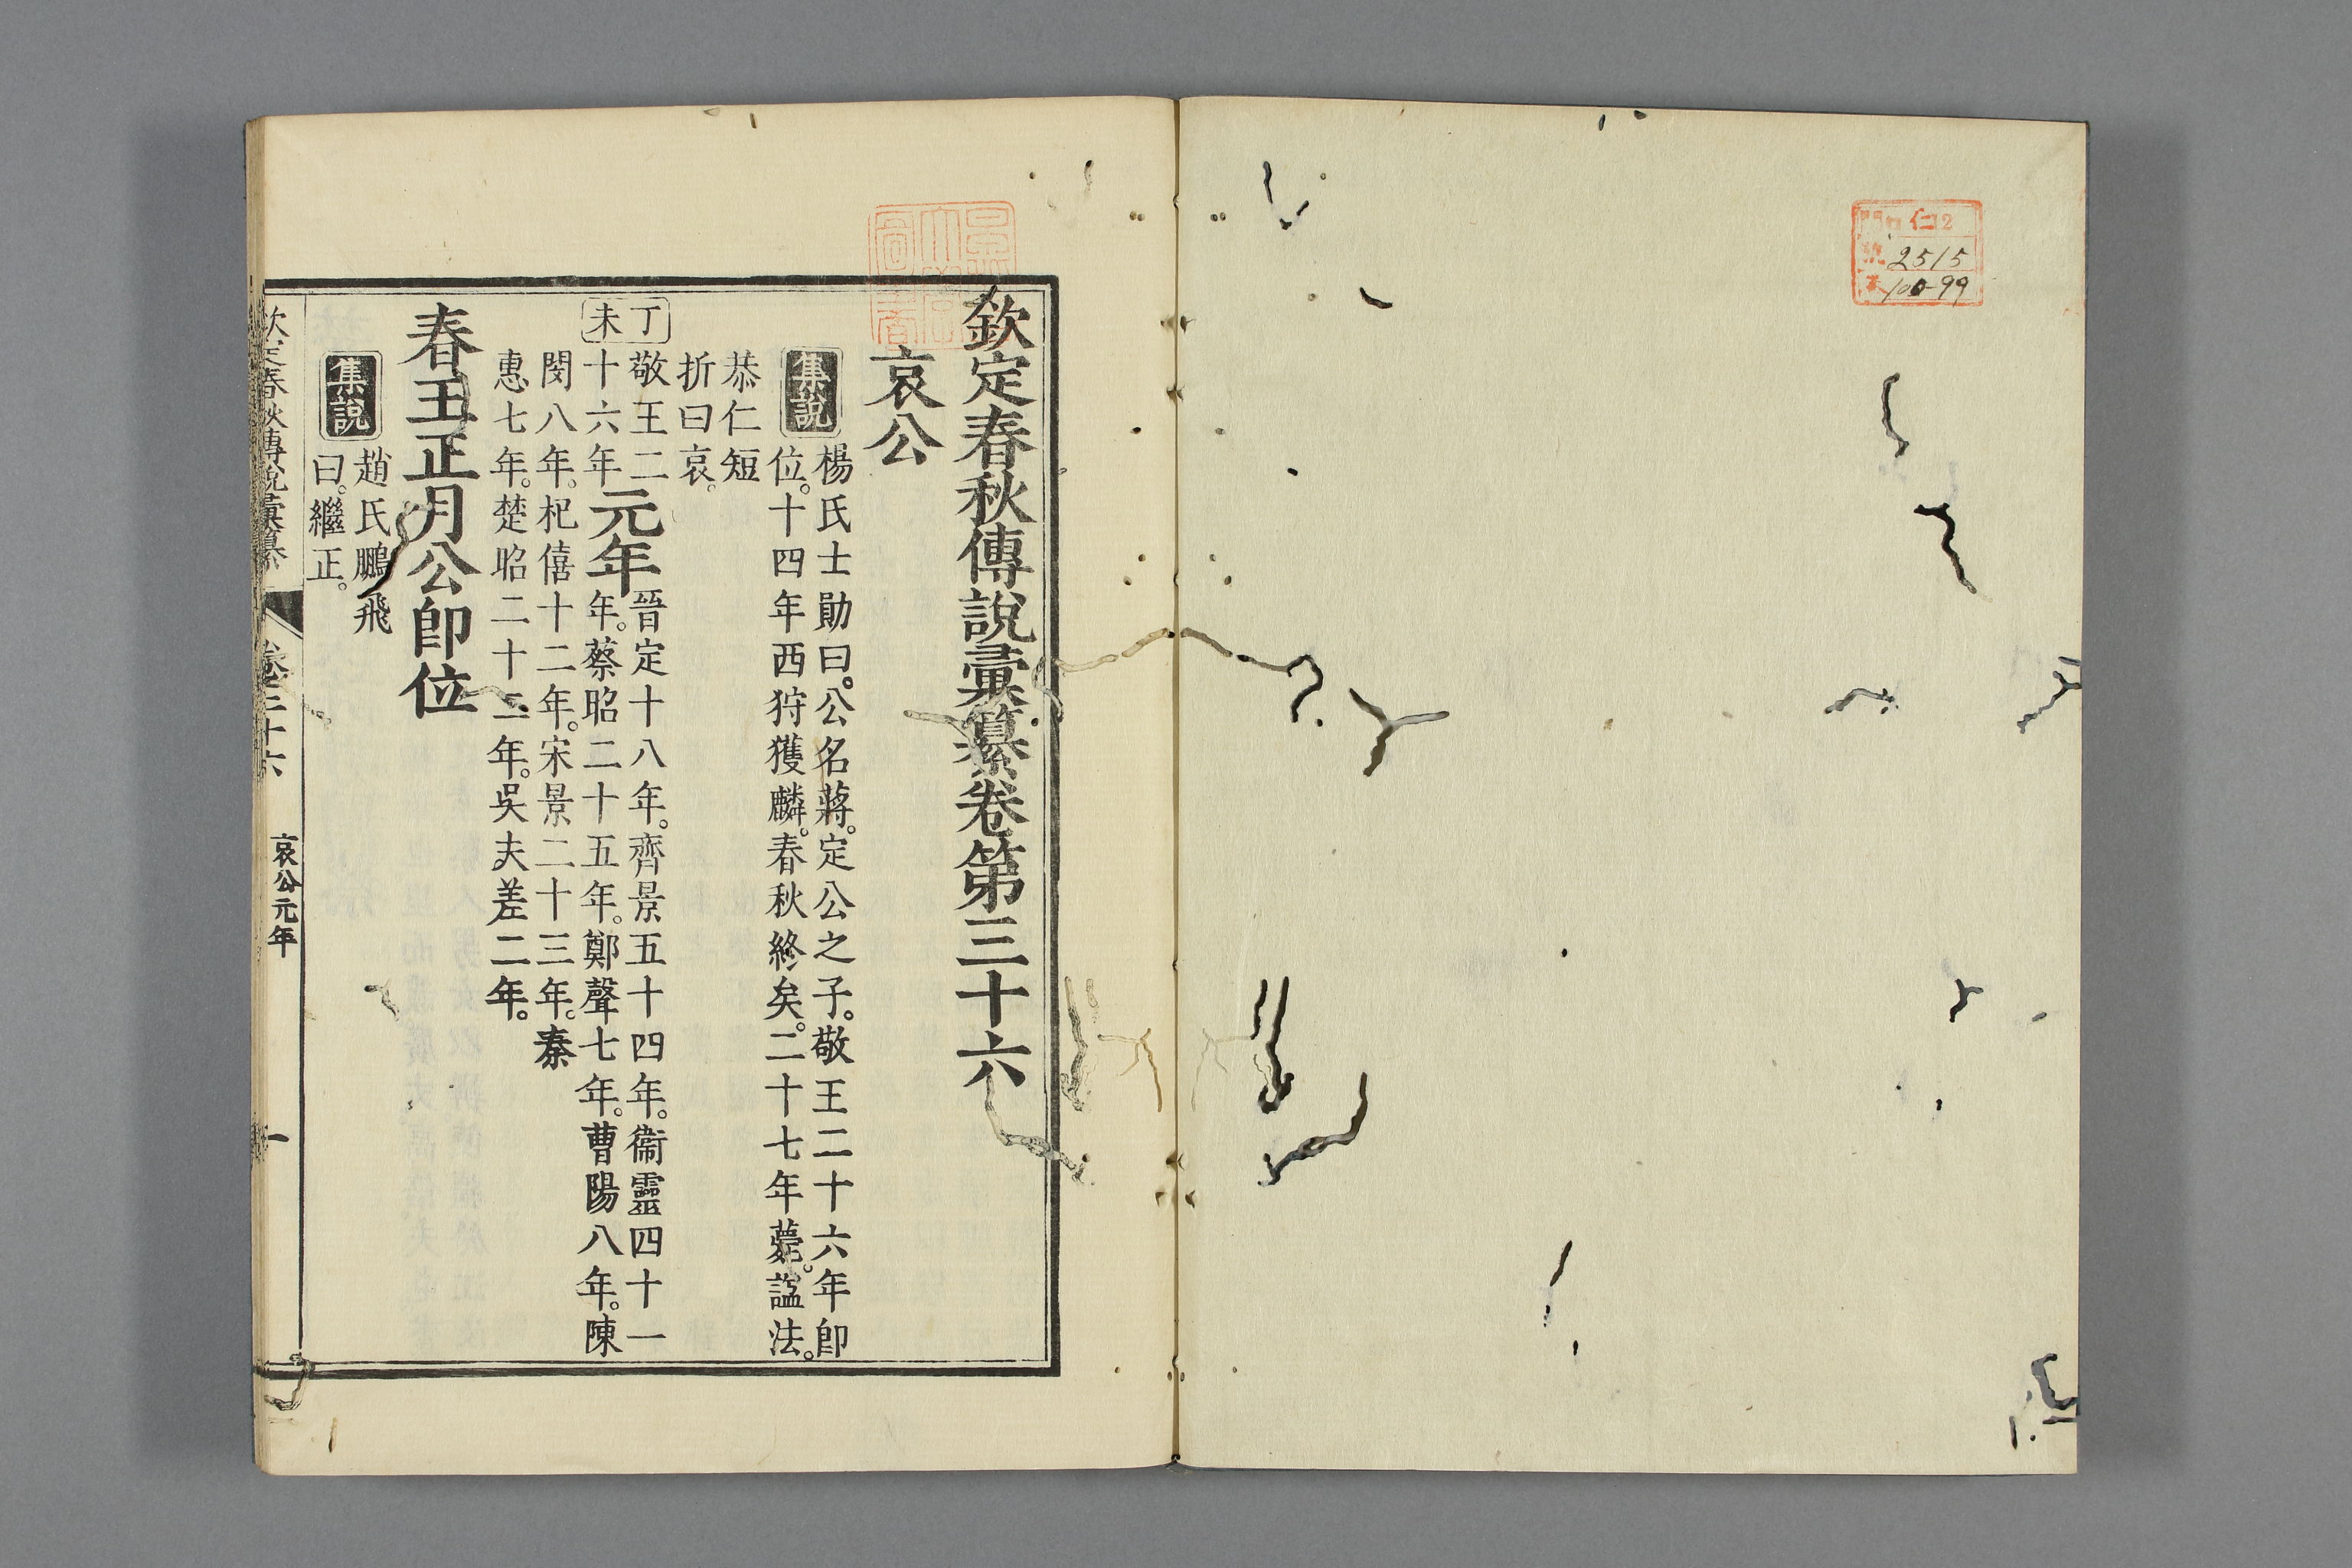 仁2
2515
100-99
欽定春秋傳說彙纂卷第三十六
哀公
集說
楊氏士勛曰。公名蔣。定公之子。敬王二十六年卽
位。十四年西狩獲麟。春秋終矣。二十七年薨。諡法。
恭仁短
折曰哀。
丁未
敬王二
十六年
元年
晉定十八年。齊景五十四年。衞靈四十一
年。蔡昭二十五年。鄭聲七年。曹陽八年。陳
閔八年。杞僖十二年。宋景二十三年。秦
惠七年。楚昭二十二年。吳夫差二年。
春王正月公卽位
集說
趙氏鵬飛
曰。繼正。
欽定春秋傳說彙纂 卷三十六 哀公元年 一